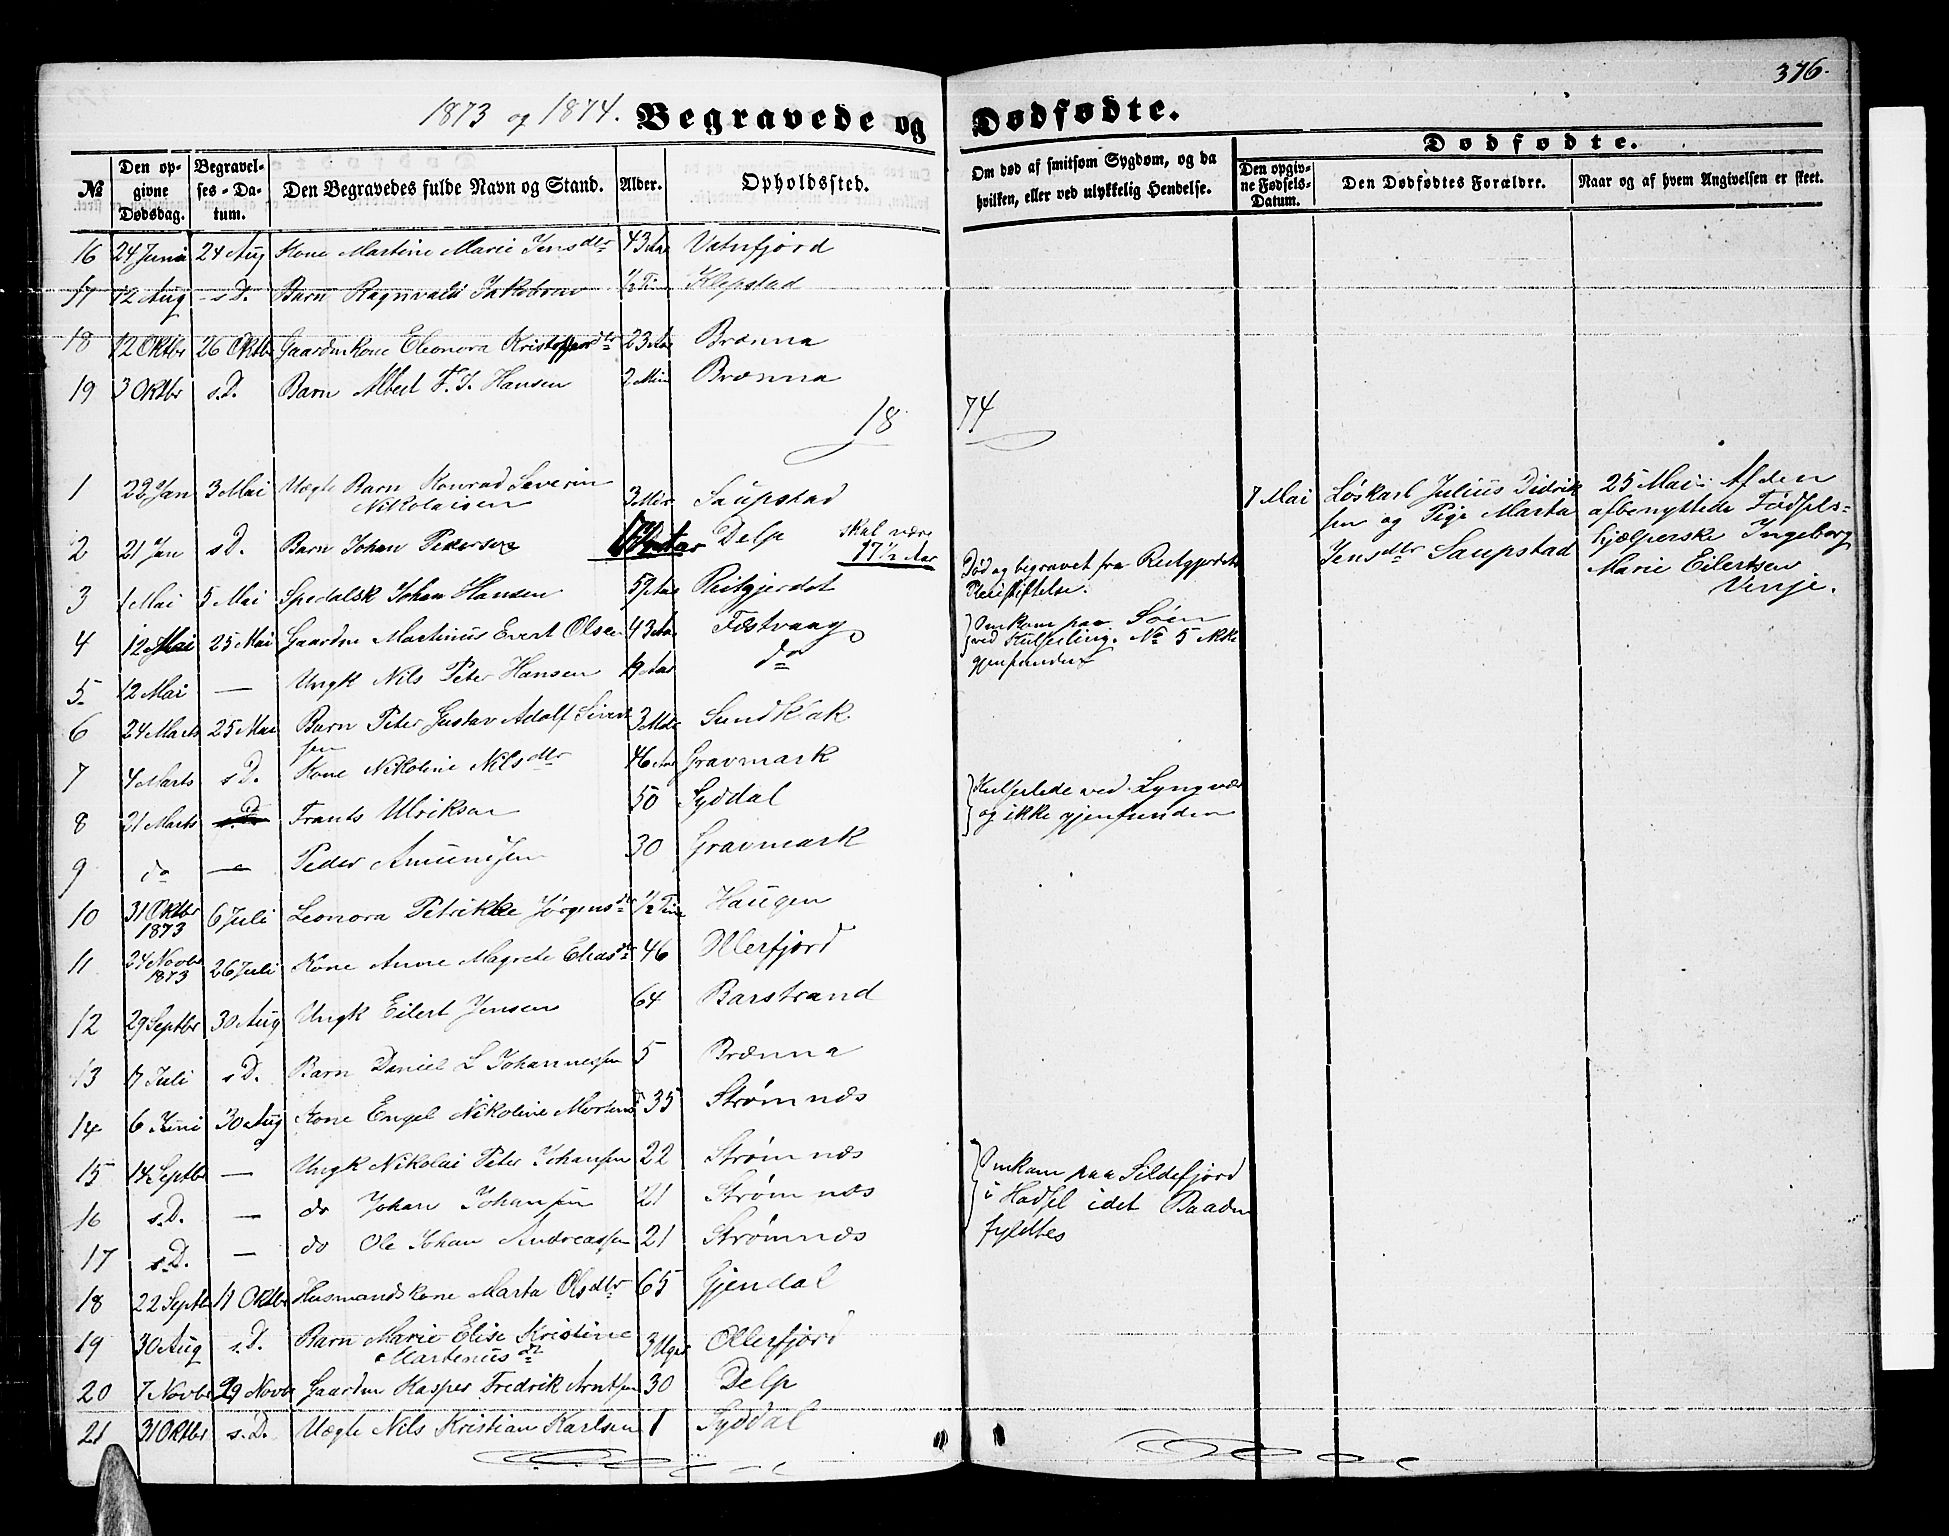 376.
1873 og 1874. Begravede og Dødfødte.
№ Den opgivne Dødsdag. Begravelses-Datum. Den Begravedes fulde Navn og Stand. Alder. Opholdssted. Om død af smitsom Sygdom, og da hvilken, eller ved ulykkelig Hendelse. Dødfødte. Den opgivne Fødsels-Datum. Den Dødfødtes Forældre. Naar og af hvem Angivelsen er skeet.
16 24 Juni 24 Aug Kone Martine Marie Jensdtr 43 Aar Vatnfjord
17 12 Aug s.D. Barn Ragnvald Jakobsen ½ Time Klepstad
18 12 Oktbr 26 Oktbr Gaardmkone Eleonora Kristoffersdtr 23 Aar Brænna
19 3 Oktbr s.D. Barn Albert F. J. Hansen Brænna
18 74
1 22 Jan 3 Mai Uægte Barn Konrad Severin
Nikolaisen 3 Mdr Saupstad
2 21 Jan s.D. Barn Johan Pedersen Delp skal være
17½ Aar
3 1 Mai 5 Mai Spedalsk Johan Hansen Reitgjerdet Død og begravet fra Reitgjerdets
Pleiestiftelse.
4 12 Mai 25 Mai Gaardm Martinus Evert Olsen 43 Aar Festvaag Omkom paa Søen
ved Kulseiling. No 5 ikke
gjenfunden
5 12 Mai — Ungk Nils Peter Hansen 19 Aar do
6 24 Marts 25 Mai Barn Peter Gustav Adolf Sivert
sen 3 Mdr Sundklak
7 4 Marts s.D. Kone Nikoline Nilsdtr 46 Aar Gravmark
8 21 Marts s.D. Frants Ulriksen 50 Syddal Kulseilede ved Lyngvær
og ikke gjenfunden
9 do — Peder Amundsen 30 Gravmark
10 31 Oktbr
1873 6 Juli Leonora Petrikke Jørgensdtr ½ Time Haugen
11 24 Novbr
1873 26 Juli Kone Anne Magrete Eliasdtr 46 Ollerfjord
12 29 Septbr 30 Aug Ungk Eilert Jensen 64 Barstrand
13 17 Juli s.D. Barn Daniel L Johannessen 5 Brænna
14 6 Juni 30 Aug Kone Engel Nikoline Mortensd 35 Strømnæs
15 14 Septbr — Ungk Nikolai Peter Johansen 22 Strømnæs Omkom paa Sildefjord
i Hadsel idet Baaden
fyldtes
16 s.D. — do Johan Johansen 21 Strømnæs
17 s.D. — do Ole Johan Andreassen 21 Strømnæs
18 22 Septbr 11 Oktbr Husmandskone Marta Olsdtr 65 Gjendal
19 30 Aug s.D. Barn Marie Elise Kristine
Martinusdtr 3 Uger Ollerfjord
20 7 Novbr 29 Novbr Gaardm Kasper Fredrik Arntsen 30 Delp
21 31 Oktbr s.D. Uægte Nils Kristian Karlsen 1 Syddal
7 Mai Løskarl Julius Didrik
sen og Pige Marta
Jensdtr Saupstad
25 Mai. Af den
afbenyttede Fødsels-
hjælperske Ingeborg
Marie Eilertsen
Vinje.